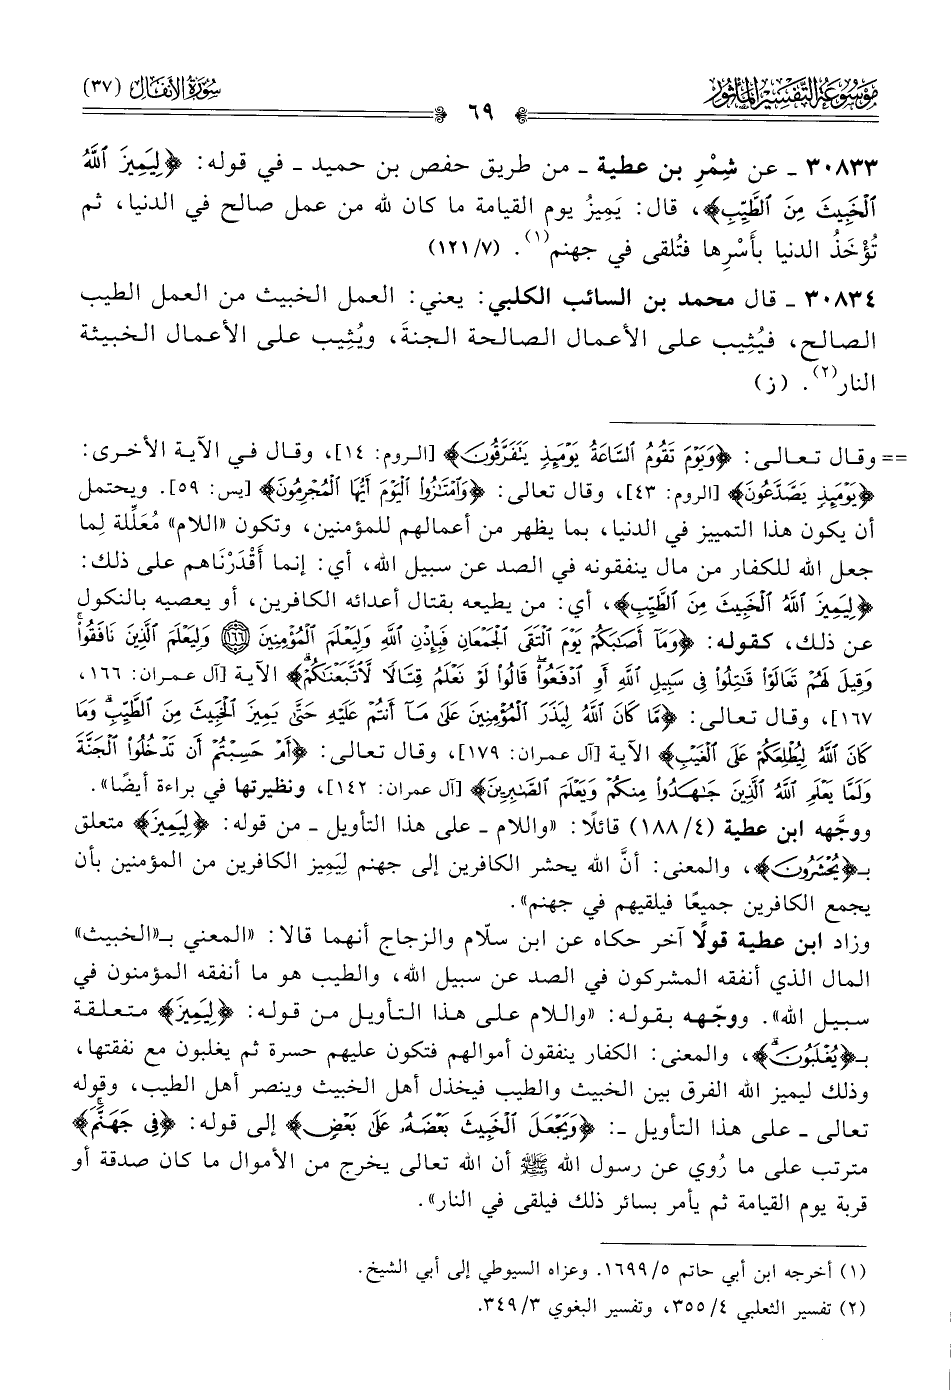 مَوْسُوعَةُ التَّفْسِيرِ المَأْثُورِ
سُورَةُ الأَنفَال (٣٧)
٦٩
٣٠٨٣٣ ـ عن شِمْرِ بن عطية ـ من طريق حفص بن حميد ـ في قوله: ﴿لِيَمِيزَ ٱللَّهُ
ٱلْخَبِيثَ مِنَ ٱلطَّيِّبِ﴾، قال: يَمِيزُ يوم القيامة ما كان لله من عمل صالح في الدنيا، ثم
تُؤْخَذُ الدنيا بأَسْرِها فتُلقى في جهنم(١). (٧/ ١٢١)
٣٠٨٣٤ ـ قال محمد بن السائب الكلبي: يعني: العمل الخبيث من العمل الطيب
الصالح، فيُثِيب على الأعمال الصالحة الجنةَ، ويُثِيب على الأعمال الخبيثة
النار(٢). (ز)
== وقال تعالى: ﴿وَيَوْمَ تَقُومُ ٱلسَّاعَةُ يَوْمَئِذٍ يَتَفَرَّقُونَ﴾ [الروم: ١٤]، وقال في الآية الأخرى:
﴿يَوْمَئِذٍ يَصَّدَّعُونَ﴾ [الروم: ٤٣]، وقال تعالى: ﴿وَٱمْتَٰزُوا۟ ٱلْيَوْمَ أَيُّهَا ٱلْمُجْرِمُونَ﴾ [يس: ٥٩]. ويحتمل
أن يكون هذا التمييز في الدنيا، بما يظهر من أعمالهم للمؤمنين، وتكون «اللام» مُعَلِّلة لِما
جعل الله للكفار من مال ينفقونه في الصد عن سبيل الله، أي: إنما أَقْدَرْنَاهم على ذلك:
﴿لِيَمِيزَ ٱللَّهُ ٱلْخَبِيثَ مِنَ ٱلطَّيِّبِ﴾، أي: من يطيعه بقتال أعدائه الكافرين، أو يعصيه بالنكول
عن ذلك، كقوله: ﴿وَمَآ أَصَٰبَكُمْ يَوْمَ ٱلْتَقَى ٱلْجَمْعَانِ فَبِإِذْنِ ٱللَّهِ وَلِيَعْلَمَ ٱلْمُؤْمِنِينَ ١٦٦ وَلِيَعْلَمَ ٱلَّذِينَ نَافَقُوا۟ۚ
وَقِيلَ لَهُمْ تَعَالَوْا۟ قَٰتِلُوا۟ فِى سَبِيلِ ٱللَّهِ أَوِ ٱدْفَعُوا۟ۖ قَالُوا۟ لَوْ نَعْلَمُ قِتَالًا لَّٱتَّبَعْنَٰكُمْۗ﴾ الآية [آل عمران: ١٦٦،
١٦٧]، وقال تعالى: ﴿مَّا كَانَ ٱللَّهُ لِيَذَرَ ٱلْمُؤْمِنِينَ عَلَىٰ مَآ أَنتُمْ عَلَيْهِ حَتَّىٰ يَمِيزَ ٱلْخَبِيثَ مِنَ ٱلطَّيِّبِۗ وَمَا
كَانَ ٱللَّهُ لِيُطْلِعَكُمْ عَلَى ٱلْغَيْبِ﴾ الآية [آل عمران: ١٧٩]، وقال تعالى: ﴿أَمْ حَسِبْتُمْ أَن تَدْخُلُوا۟ ٱلْجَنَّةَ
وَلَمَّا يَعْلَمِ ٱللَّهُ ٱلَّذِينَ جَٰهَدُوا۟ مِنكُمْ وَيَعْلَمَ ٱلصَّٰبِرِينَ﴾ [آل عمران: ١٤٢]، ونظيرتها في براءة أيضًا».
ووجَّهه ابن عطية (٤/ ١٨٨) قائلًا: «واللام ـ على هذا التأويل ـ من قوله: ﴿لِيَمِيزَ﴾ متعلق
بـ﴿يُحْشَرُونَ﴾، والمعنى: أنَّ الله يحشر الكافرين إلى جهنم لِيَميز الكافرين من المؤمنين بأن
يجمع الكافرين جميعًا فيلقيهم في جهنم».
وزاد ابن عطية قولًا آخر حكاه عن ابن سلّام والزجاج أنهما قالا: «المعني بـ«الخبيث»
المال الذي أنفقه المشركون في الصد عن سبيل الله، والطيب هو ما أنفقه المؤمنون في
سبيل الله». ووجّهه بقوله: «واللام على هذا التأويل من قوله: ﴿لِيَمِيزَ﴾ متعلقة
بـ﴿يُغْلَبُونَۗ﴾، والمعنى: الكفار ينفقون أموالهم فتكون عليهم حسرة ثم يغلبون مع نفقتها،
وذلك ليميز الله الفرق بين الخبيث والطيب فيخذل أهل الخبيث وينصر أهل الطيب، وقوله
تعالى ـ على هذا التأويل ـ: ﴿وَيَجْعَلَ ٱلْخَبِيثَ بَعْضَهُۥ عَلَىٰ بَعْضٍ﴾ إلى قوله: ﴿فِى جَهَنَّمَۚ﴾
مترتب على ما رُوي عن رسول الله ﷺ أن الله تعالى يخرج من الأموال ما كان صدقة أو
قربة يوم القيامة ثم يأمر بسائر ذلك فيلقى في النار».
(١) أخرجه ابن أبي حاتم ٥/ ١٦٩٩. وعزاه السيوطي إلى أبي الشيخ.
(٢) تفسير الثعلبي ٤/ ٣٥٥، وتفسير البغوي ٣/ ٣٤٩.